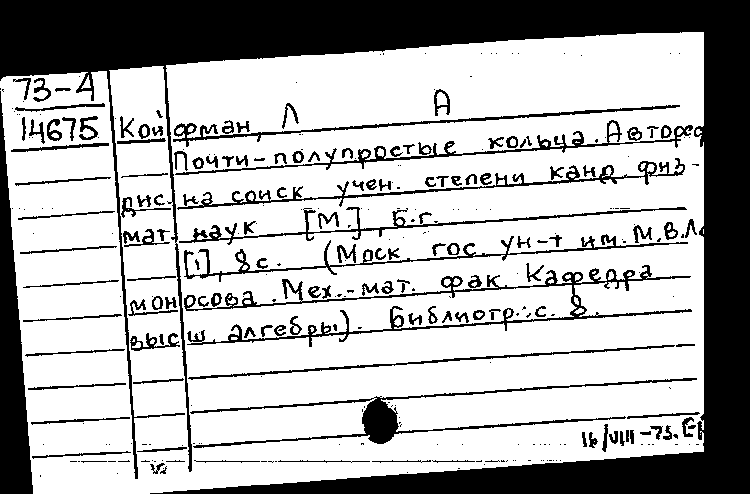 73-4
14675
Койфман, Л А
Почти-полупростые кольца. Автореф
дис. на соиск. учен. степени канд. физ-
мат. наук [М.], б.г.
[1], 8 с. (Моск. гос. ун-т им. М.В.Ло
моносова. Мех.-мат. фак. Кафедра
высш. алгебры). Библиогр.: с. 8.
16/VIII-73.